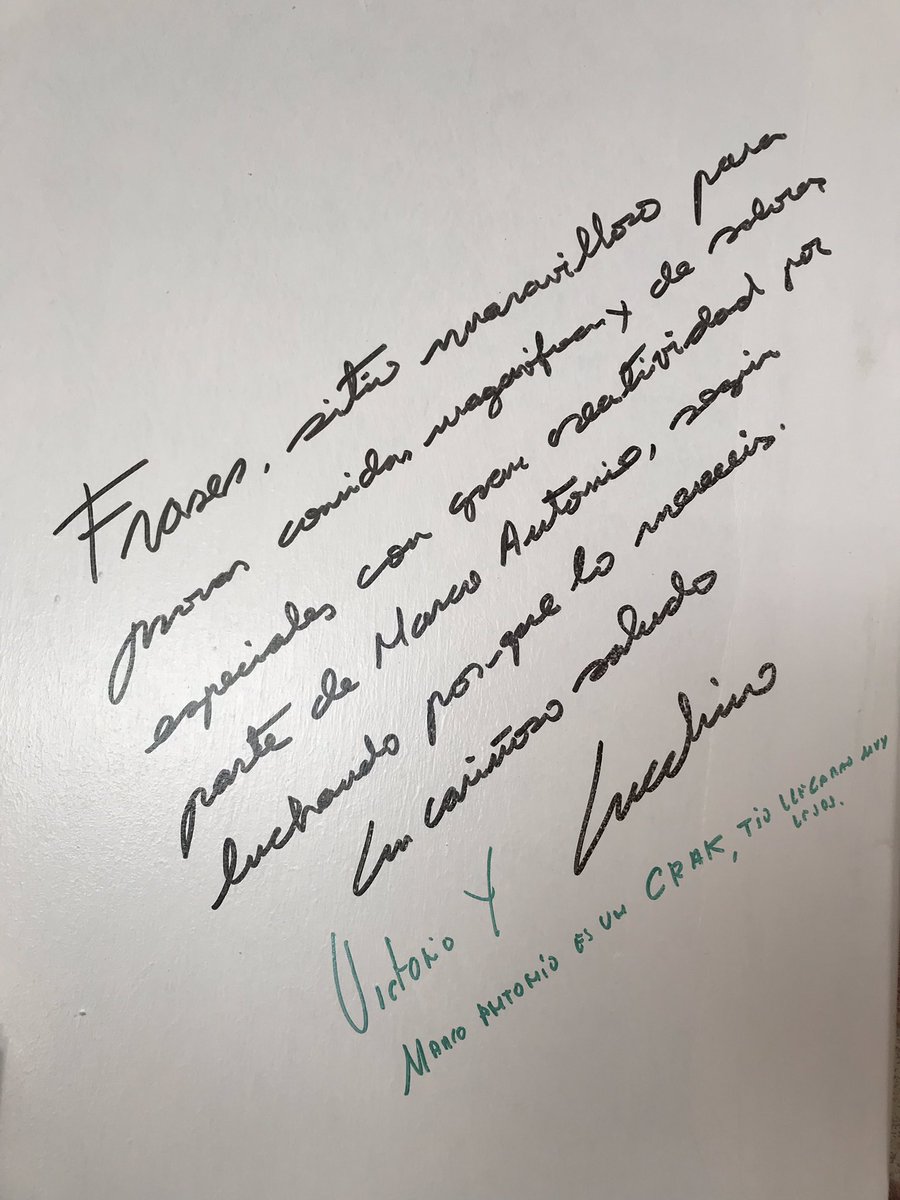 Frases, sitio maravilloso para
provar comidas magnificas y de sabores
especiales con gran creatividad por
parte de Marco Antonio, seguir
luchando por-que lo mereceis.
Un cariñoso saludo
Victorio Y Lucchino
MARCO ANTONIO ES UN CRAK, TIO LLEGARAS MUY
LEJOS.